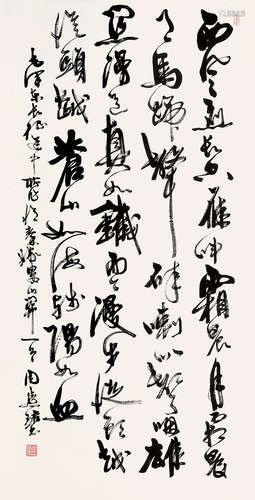 西风烈长空雁叫霜晨月霜晨
月马蹄声碎喇叭声咽雄
关漫道真如铁而今漫步从头越
从头越苍山如海残阳如血
毛泽东长征途中所作忆秦娥娄山关一首周慧珺